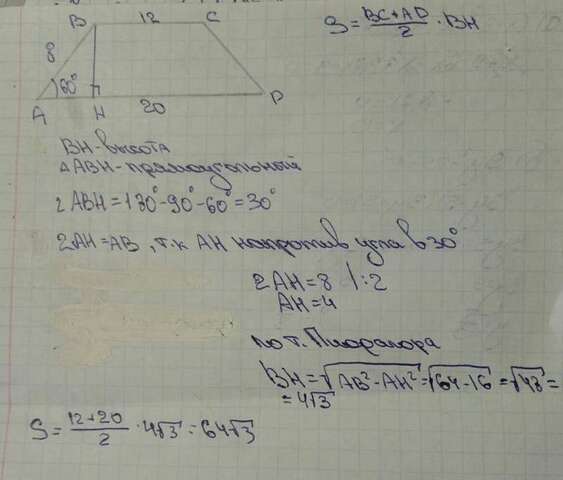 B 12 C
S = (BC+AD)/2 · BH
8
60°
A H 20 D
BH-высота
△ABH-прямоугольный
∠ABH=180°-90°-60°=30°
2AH=AB, т.к AH напротив угла в 30°
2AH=8 |:2
AH=4
по т. Пифагора
BH=√(AB²-AH²)=√(64-16)=√48=
=4√3
S = (12+20)/2 · 4√3 = 64√3